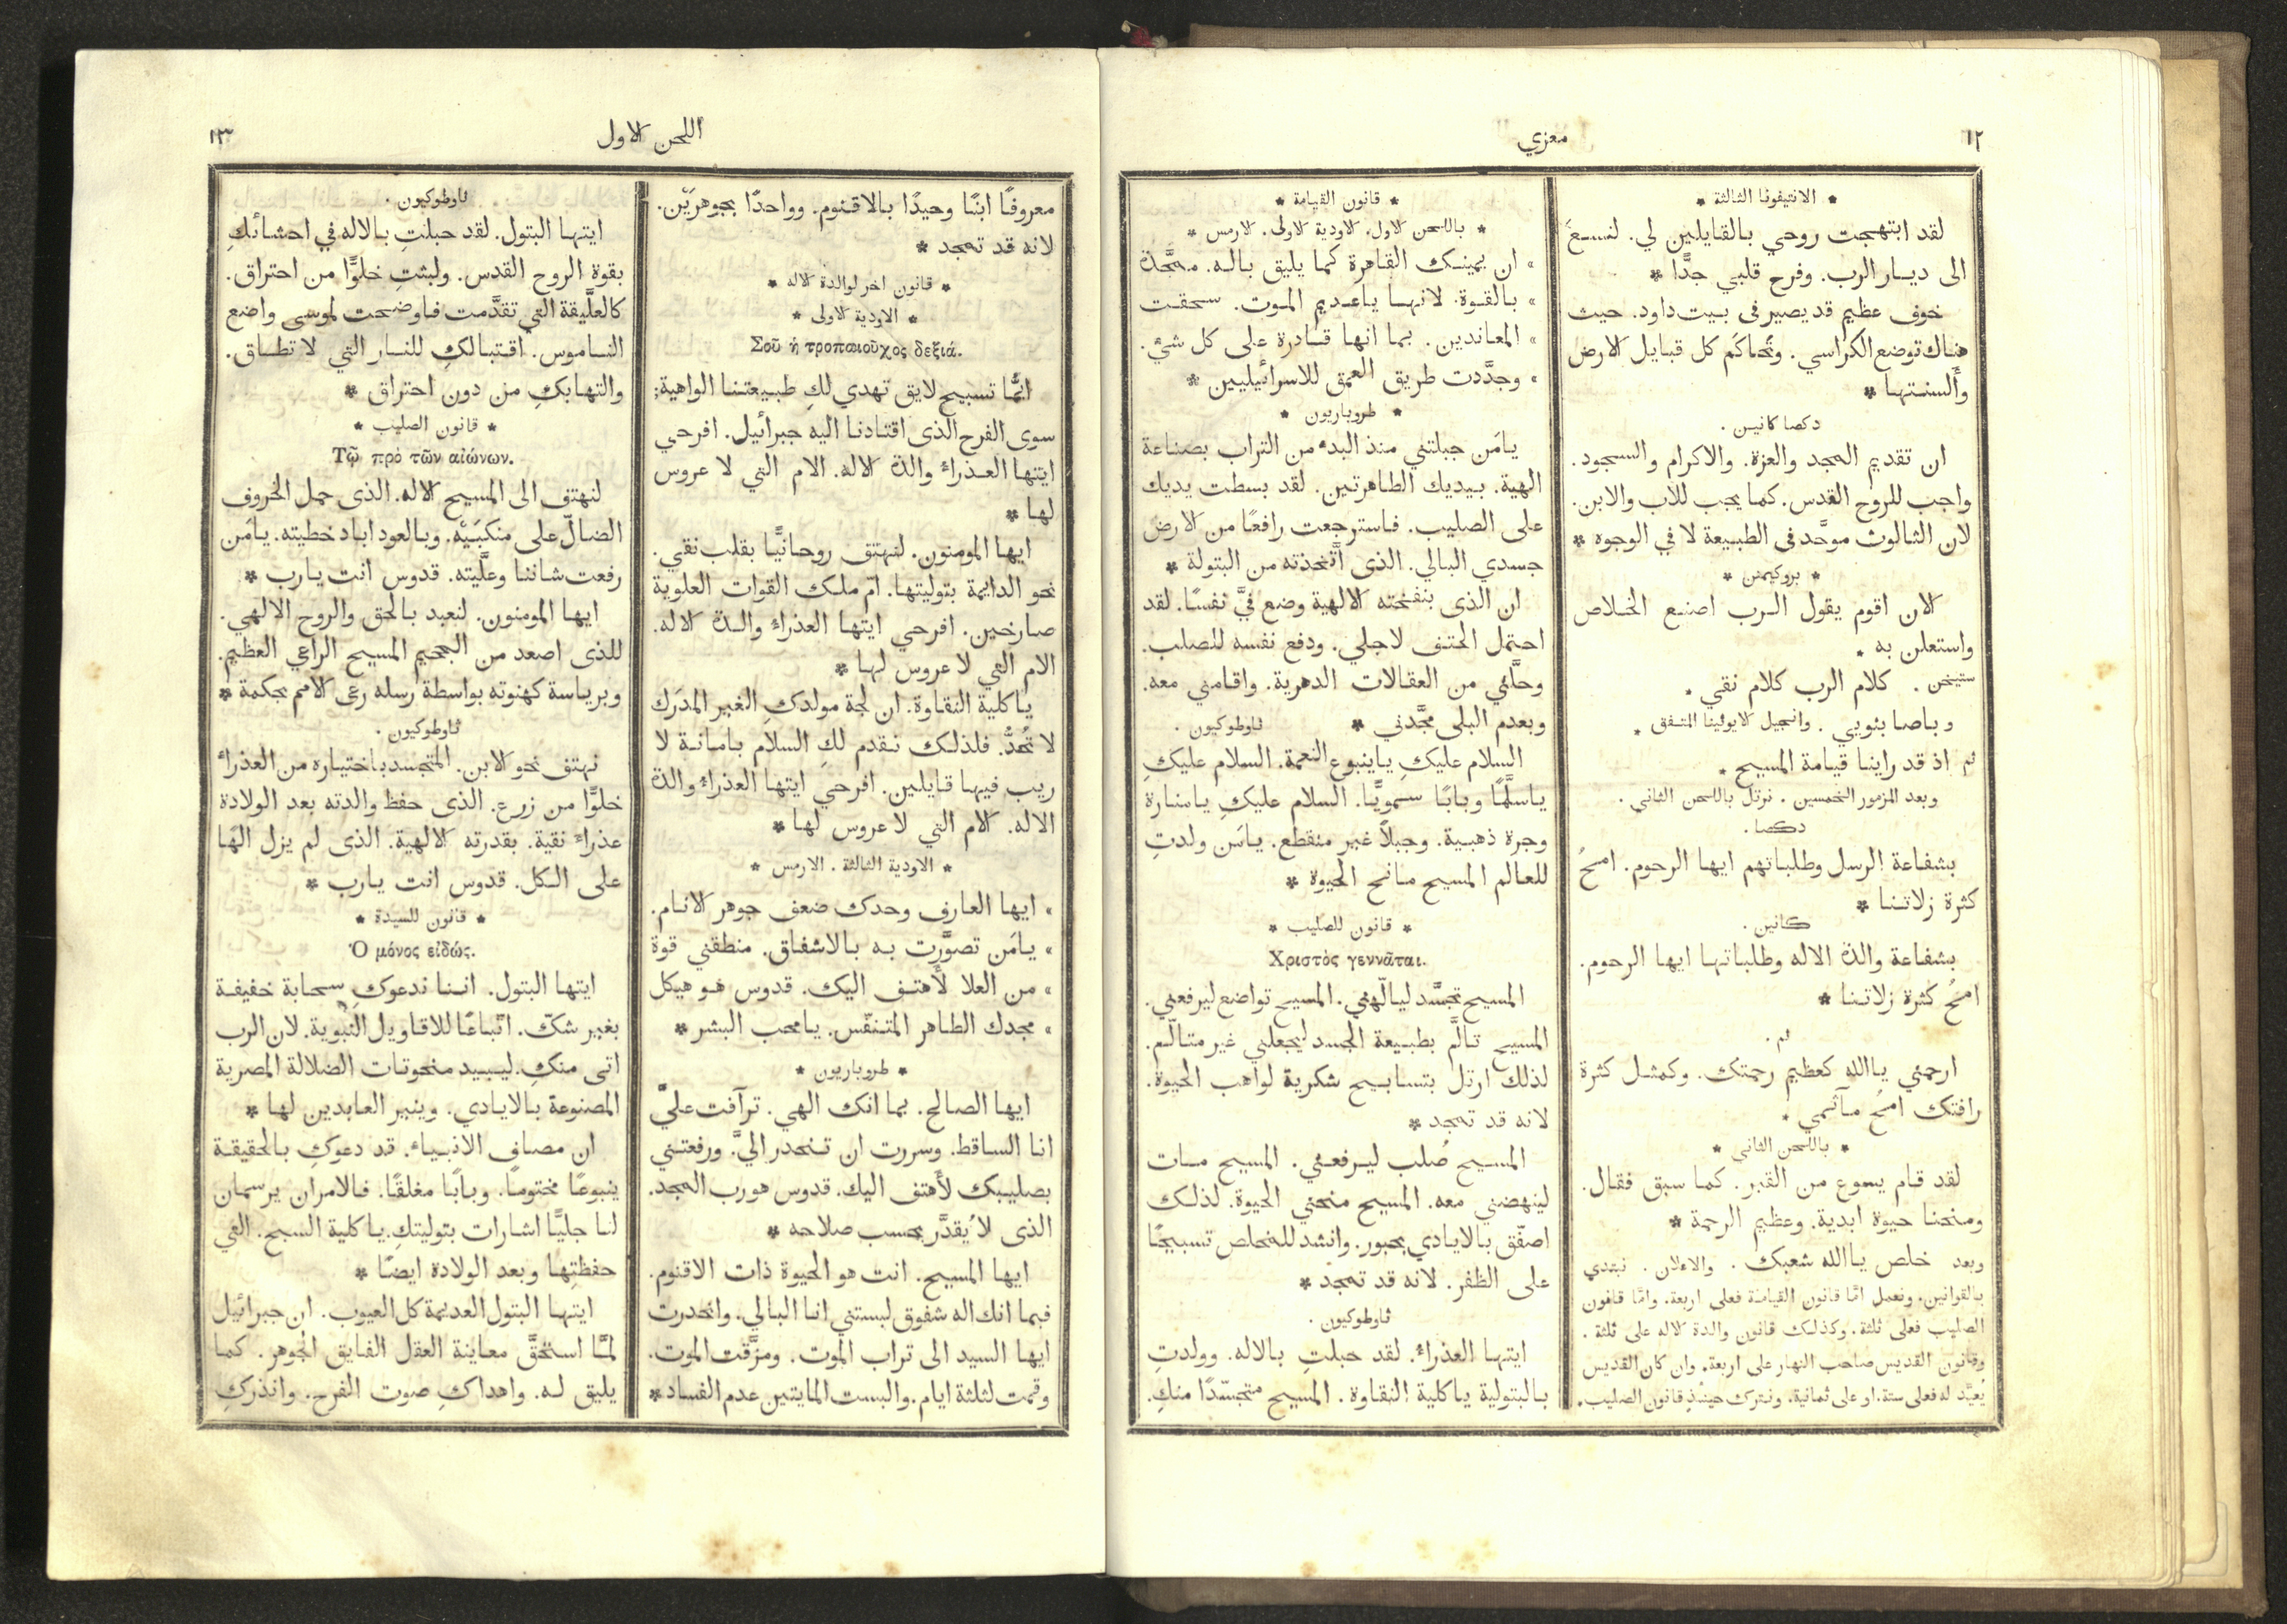 ١٢
معزي
* الانتيفونا الثالثة *
لقد ابتهجت روحي بالقايلين لي. لنسعَ
الى ديار الرب. وفرح قلبي جدًّا *
خوف عظيم قد يصير في بيت داود. حيث
هناك توضع الكراسي. وتُحاكَم كل قبايل الارض
وأَلسنتها *
دكصا كانين.
ان تقديم المجد والعزة. والاكرام والسجود.
واجب للروح القدس. كما يجب للاب والابن.
لان الثالوث موحَّد في الطبيعة لا في الوجوه *
* بروكيمنن *
الان اقوم يقول الرب اصنع الخلاص
واستعلن به *
ستيخن. كلام الرب كلام نقي *
وباصا بنويي. وانجيل لايوثينا المتفق *
ثم اذ قد راينا قيامة المسيح *
وبعد المزمور الخمسين. نرتل باللحن الثاني.
دكصا.
بشفاعة الرسل وطلباتهم ايها الرحوم. امحُ
كثرة زلاتنا *
كانين.
بشفاعة والدة الاله وطلباتها ايها الرحوم.
امحُ كثرة زلاتنا *
ثم.
ارحمني ياالله كعظيم رحمتك. وكمثل كثرة
رافتك امحُ مآثمي *
* باللحن الثاني *
لقد قام يسوع من القبر. كما سبق فقال.
ومنحنا حيوة ابدية. وعظيم الرحمة *
وبعد خلص ياالله شعبك. والاعلان. نبتدي
بالقوانين. ونعمل امَّا قانون القيامة فعلى اربعة. وامَّا قانون
الصليب فعلى ثلثة. وكذلك قانون والدة الاله على ثلثة.
وقانون القديس صاحب النهار على اربعة. وان كان القديس
يُعيَّد له فعلى ستة. او على ثمانية. ونترك حينئذٍ قانون الصليب.
* قانون القيامة *
* باللحن الاول. الاودية الاولى. الارمس *
» ان يمينك القاهرة كما يليق باله. ممجَّدة
» بالقوة. لانها ياعديم الموت. سحقت
» المعاندين. بما انها قادرة على كل شيء.
» وجدَّدت طريق العمق للاسرائيليين *
* طروباريون *
يامَن جبلتني منذ البدء من التراب بصناعة
الهية. بيديك الطاهرتين. لقد بسطت يديك
على الصليب. فاسترجعت رافعًا من الارض
جسدي البالي. الذى اتَّخذته من البتولة *
ان الذى بنفخته الالهية وضع فيَّ نفسًا. لقد
احتمل الحتف لاجلي. ودفع نفسه للصلب.
وحلَّني من العقالات الدهرية. واقامني معه.
وبعدم البلى مجَّدني * ثاوطوكيون.
السلام عليكِ ياينبوع النعمة. السلام عليكِ
ياسلَّمًا وبابًا سمويًّا. السلام عليكِ يامنارة
وجرة ذهبية. وجبلاً غير منقطع. يامَن ولدتِ
للعالم المسيح مانح الحيوة *
* قانون للصليب *
Χριστὸς γεννᾶται.
المسيح تجسَّد ليالّهني. المسيح تواضع ليرفعني.
المسيح تالَّم بطبيعة الجسد ليجعلني غير متالّم.
لذلك ارتل بتسابيح شكرية لواهب الحيوة.
لانه قد تمجد *
المسيح صُلب ليرفعني. المسيح مات
لينهضني معه. المسيح منحني الحيوة. لذلك
اصفّق بالايادي بحبور. وانشد للمخلص تسبيحًا
على الظفر. لانه قد تمجد *
ثاوطوكيون.
ايتها العذراء. لقد حبلتِ بالاله. وولدتِ
بالبتولية ياكلية النقاوة. المسيح متجسّدًا منكِ.
اللحن الاول
١٣
معروفًا ابنًا وحيدًا بالاقنوم. وواحدًا بجوهرَيْن.
لانه قد تمجد *
* قانون اخر لوالدة الاله *
* الاودية الاولى *
Σοῦ ἡ τροπαιοῦχος δεξιά.
ايُّما تسبيح لايق تهدي لكِ طبيعتنا الواهية;
سوى الفرح الذى اقتادنا اليه جبرائيل. افرحي
ايتها العذراء والدة الاله. الام التي لا عروس
لها *
ايها المومنون. لنهتف روحانيًّا بقلب نقي.
نحو الدايمة بتوليتها. امّ ملك القوات العلوية
صارخين. افرحي ايتها العذراء والدة الاله.
الام التي لا عروس لها *
ياكلية النقاوة. ان لجة مولدكِ الغير المدرَك
لا تُحدُّ. فلذلك نقدم لكِ السلام بامانة لا
ريب فيها قايلين. افرحي ايتها العذراء والدة
الاله. الام التي لا عروس لها *
* الاودية الثالثة. الارمس *
» ايها العارف وحدك ضعف جوهر الانام.
» يامَن تصوَّرت به بالاشفاق. منطقني قوة
» من العلا لأَهتف اليك. قدوس هو هيكل
» مجدك الطاهر المتنفّس. يامحب البشر *
* طروباريون *
ايها الصالح. بما انك الهي. ترآفت عليَّ
انا الساقط. وسررت ان تنحدر اليَّ. ورفعتني
بصليبك لأَهتف اليك. قدوس هو رب المجد.
الذى لا يُقدَّر بحسب صلاحه *
ايها المسيح. انت هو الحيوة ذات الاقنوم.
فبما انك اله شفوق لبستني انا البالي. وانحدرت
ايها السيد الى تراب الموت. ومزَّقت الموت.
وقمت لثلثة ايام. والبست المايتين عدم الفساد *
ثاوطوكيون.
ايتها البتول. لقد حبلتِ بالاله في احشائكِ
بقوة الروح القدس. ولبثتِ خلوًّا من احتراق.
كالعلَّيقة التي تقدَّمت فاوضحت لموسى واضع
الناموس. اقتبالكِ للنار التي لا تطاق.
والتهابكِ من دون احتراق *
* قانون الصليب *
Τῷ πρὸ τῶν αἰώνων.
لنهتف الى المسيح الاله. الذى حمل الخروف
الضالّ على منكبَيْه. وبالعود اباد خطيته. يامَن
رفعت شاننا وعلَّيته. قدوس انت يارب *
ايها المومنون. لنعبد بالحق والروح الالهي.
للذى اصعد من الجحيم المسيح الراعي العظيم.
وبرياسة كهنوته بواسطة رسله رعى الامم بحكمة *
ثاوطوكيون.
نهتف نحو الابن. المتجسد باختياره من العذراء
خلوًّا من زرع. الذى حفظ والدته بعد الولادة
عذراء نقية. بقدرته الالهية. الذى لم يزل الهًا
على الكل. قدوس انت يارب *
* قانون للسيدة *
Ὁ μόνος εἰδώς.
ايتها البتول. اننا ندعوكِ سحابة خفيفة
بغير شكّ. اتّباعًا للاقاويل النبوية. لان الرب
اتى منكِ. ليبيد منحوتات الضلالة المصرية
المصنوعة بالايادي. وينير العابدين لها *
ان مصاف الانبياء. قد دعوكِ بالحقيقة
ينبوعًا مختومًا. وبابًا مغلقًا. فالامران يرسمان
لنا جليًّا اشارات بتوليتكِ. ياكلية السبح. التي
حفظتِها وبعد الولادة ايضًا *
ايتها البتول العديمة كل العيوب. ان جبرائيل
لمَّا استحقَّ معاينة العقل الفايق الجوهر. كما
يليق له. واهداكِ صوت الفرح. وانذركِ